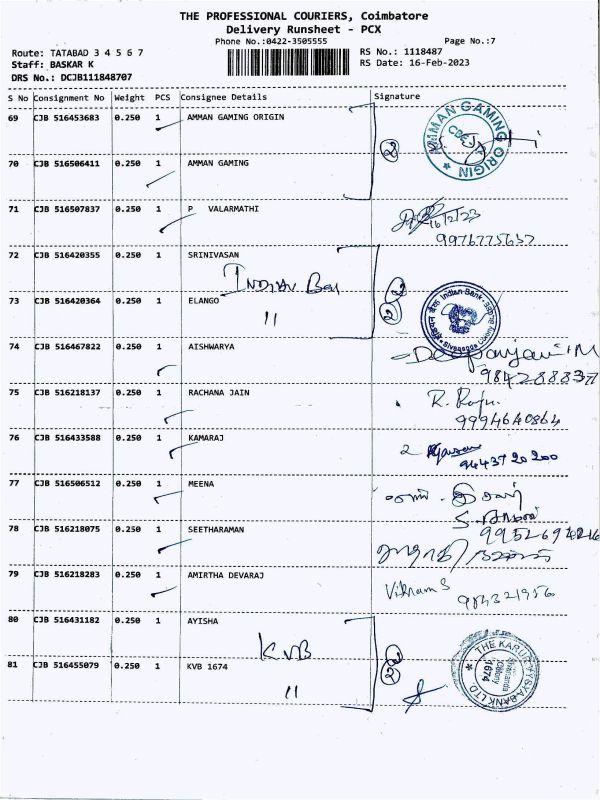 THE PROFESSIONAL COURIERS, Coimbatore
Delivery Runsheet - PCX
Phone No.:0422-3505555 Page No.:7
Route: TATABAD 3 4 5 6 7 RS No.: 1118487
Staff: BASKAR K RS Date: 16-Feb-2023
DRS No.: DCJB111848707
S No Consignment No Weight PCS Consignee Details Signature
69 CJB 516453683 0.250 1 AMMAN GAMING ORIGIN
AMMAN GAMING ORIGIN
CBE
2
70 CJB 516506411 0.250 1 AMMAN GAMING
71 CJB 516507837 0.250 1 P VALARMATHI
16/2/23
9976775657
72 CJB 516420355 0.250 1 SRINIVASAN
INDIAN Ban
2
Indian Bank
73 CJB 516420364 0.250 1 ELANGO
"
74 CJB 516467822 0.250 1 AISHWARYA
75 CJB 516218137 0.250 1 RACHANA JAIN
R. Raju.
9994640864
76 CJB 516433588 0.250 1 KAMARAJ
2
9443720200
77 CJB 516506512 0.250 1 MEENA
78 CJB 516218075 0.250 1 SEETHARAMAN
79 CJB 516218283 0.250 1 AMIRTHA DEVARAJ
Vikram S
80 CJB 516431182 0.250 1 AYISHA
KVB
2
THE KARUR VYSYA BANK LTD.
1674
81 CJB 516455079 0.250 1 KVB 1674
"